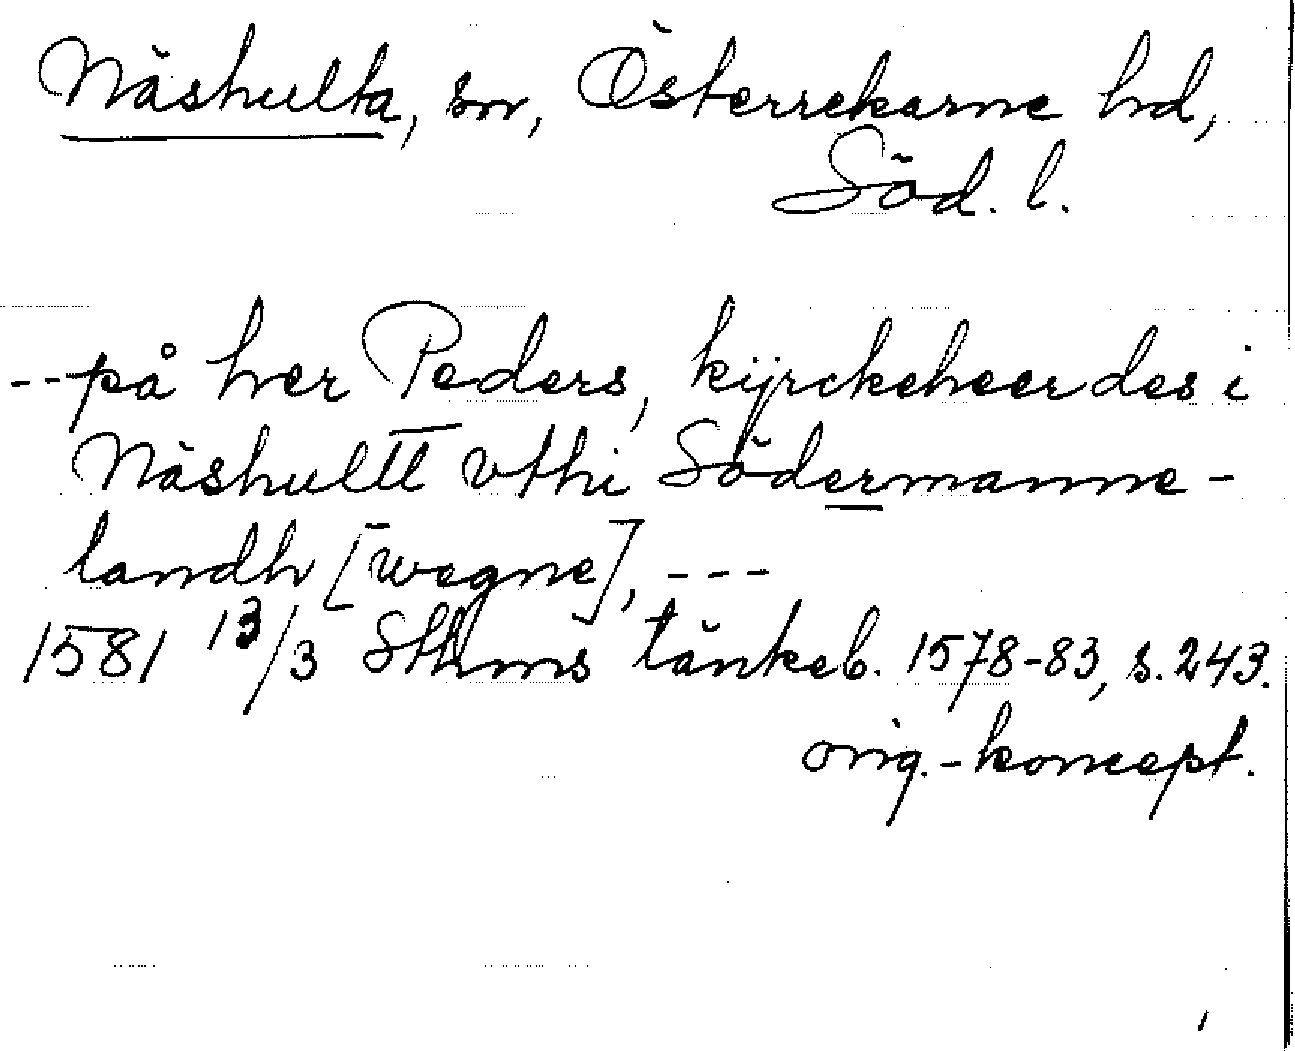 Näshulta, sn, Österrekarne hd,
Söd. l.
--på her Peders, kÿrckeheerdes i
Näshultt vthi Södermanne-
landh [wegne], ---
1581 13/3 Sthms tänkeb. 1578-83, s. 243.
orig.-koncept.